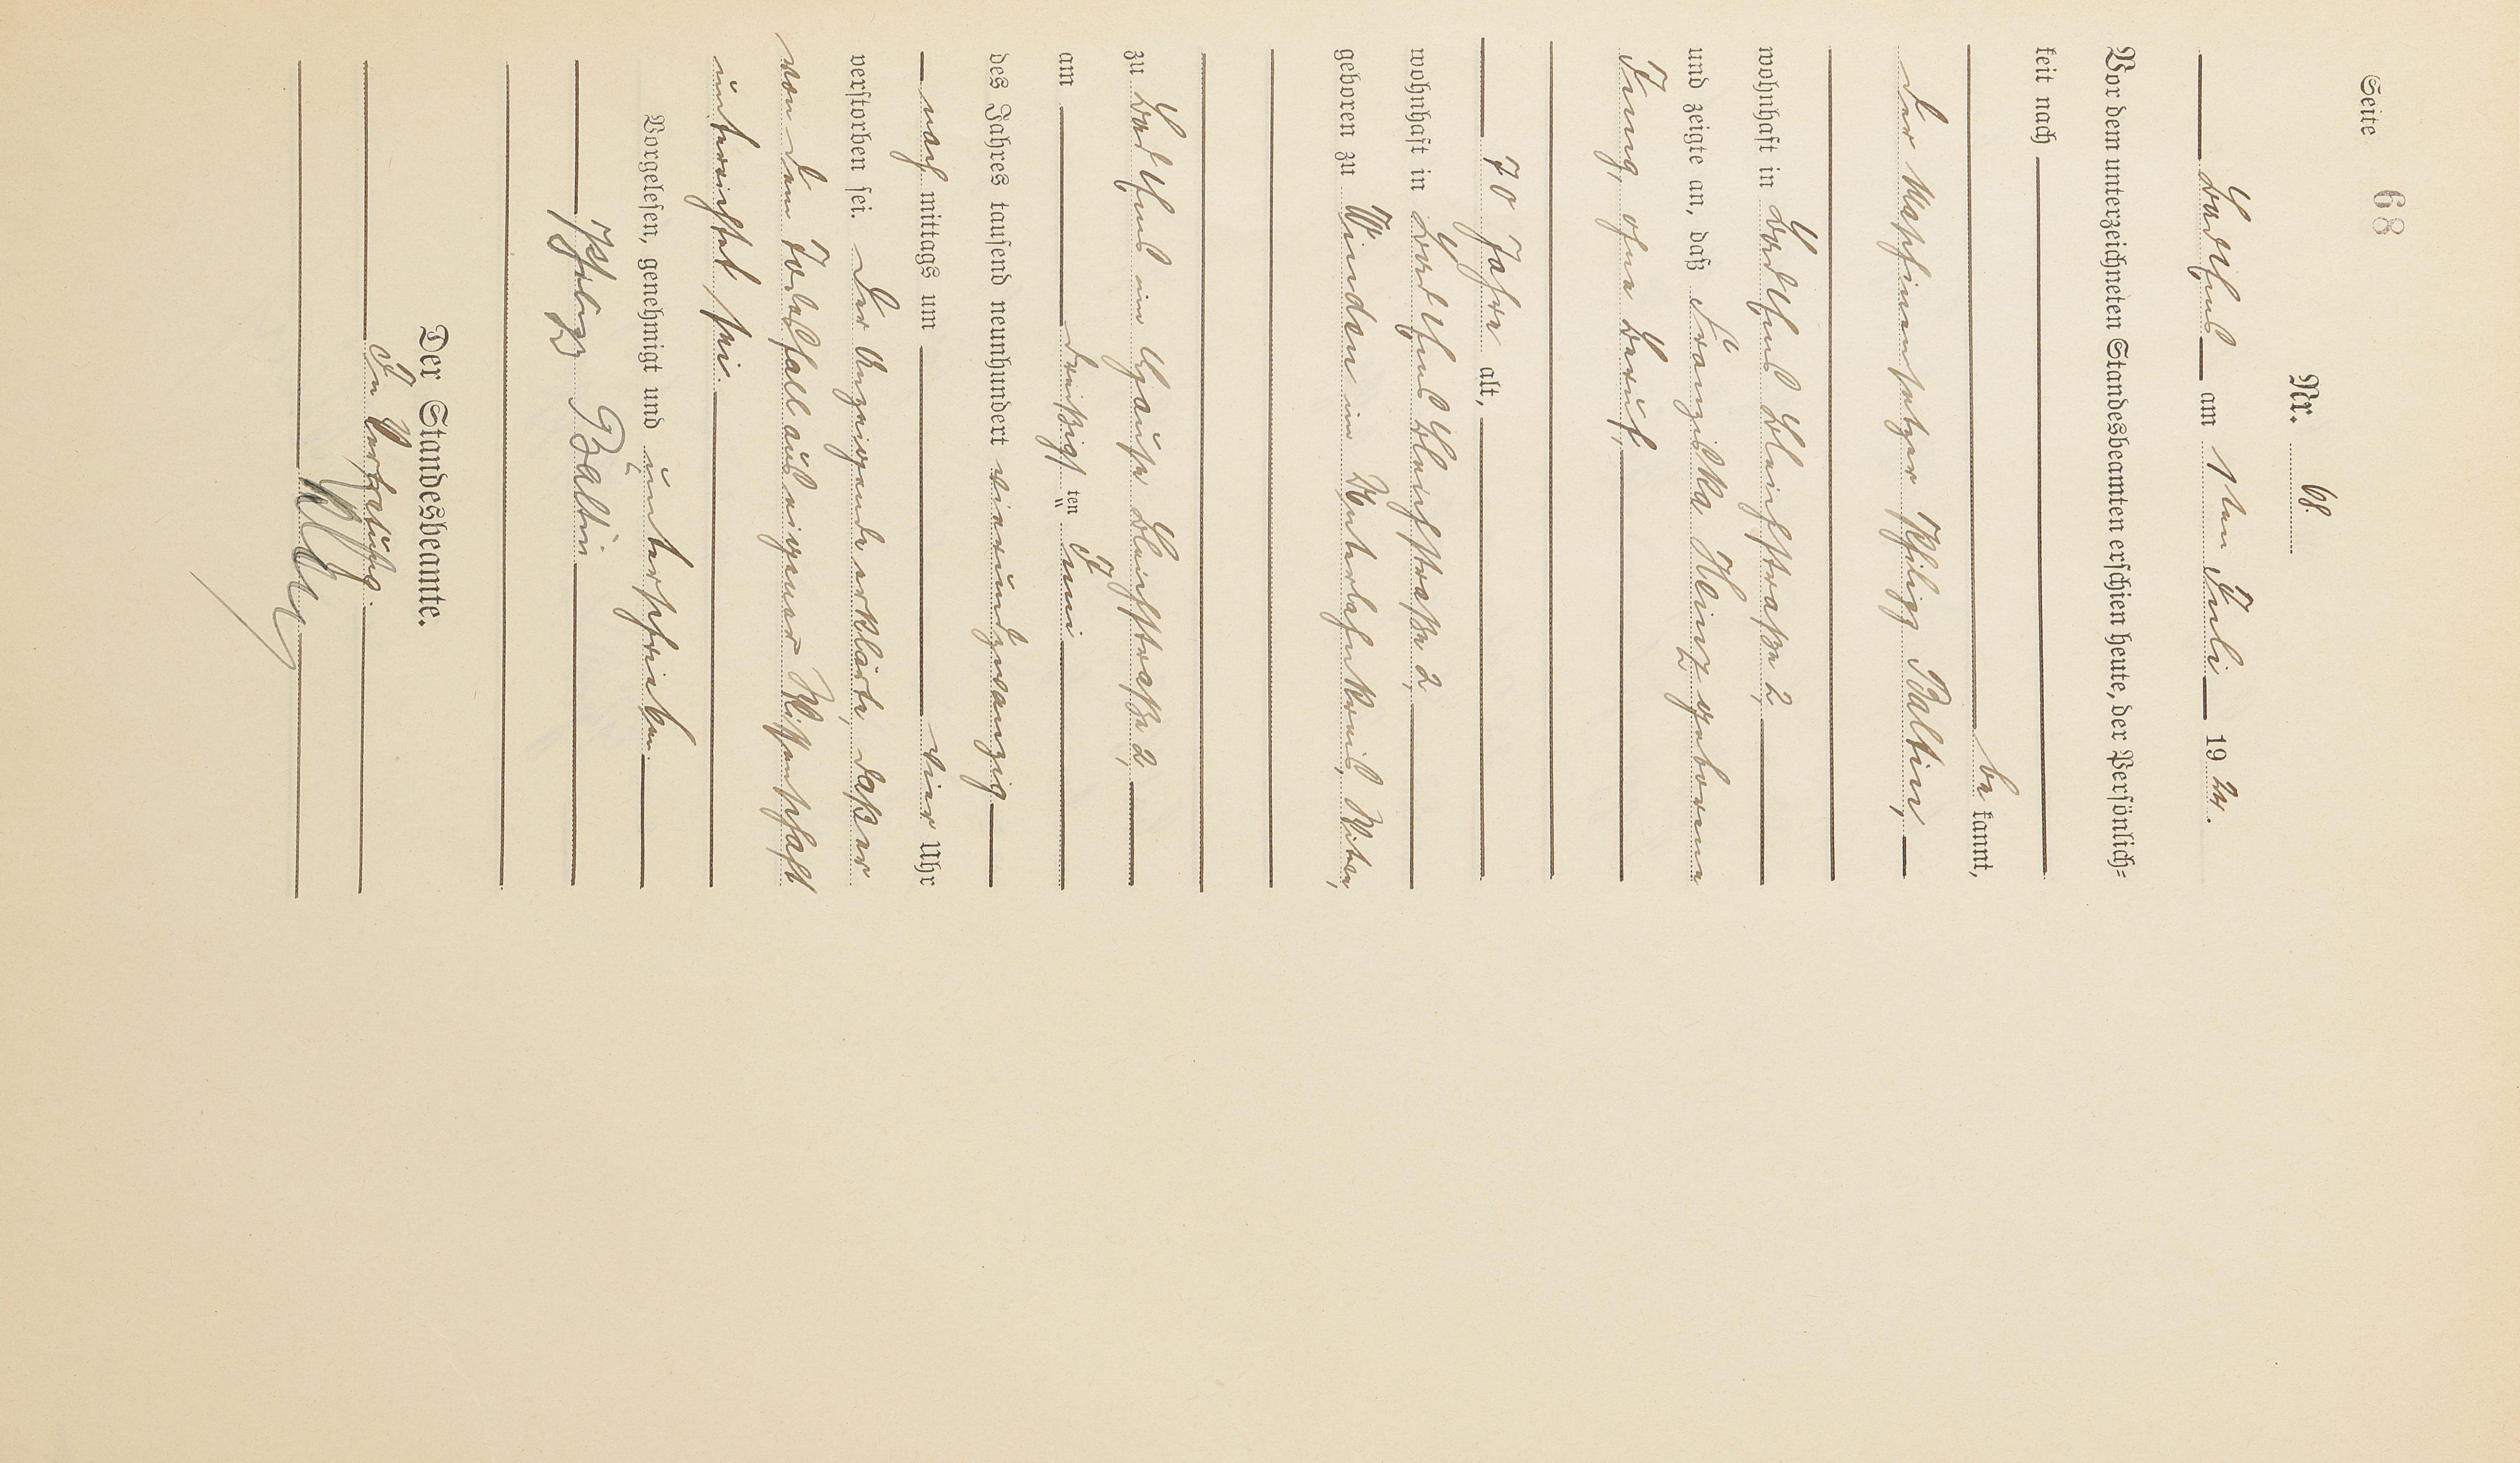 Seite 68
Nr. 68.
Bad Ems am 1ten Juli 1924.
Vor dem unterzeichneten Standesbeamten erschien heute, der Persönlich-
keit nach
be kannt,
der Maschinensetzer Philipp Baltin,
wohnhaft in Bad Ems Bleichstraße 2,
und zeigte an, daß Franziska Klinz geborene
Jung, ohne Beruf,
70 Jahre alt,
wohnhaft in Bad Ems Bleichstraße 2,
geboren zu Winden im Unterlahnkreis, Witwe,
zu Bad Ems im Hause Bleichstraße 2,
am dreißigsten Juni
des Jahres tausend neunhundert vierundzwanzig
nach mittags um vier Uhr
verstorben sei. Der Anzeigende erklärte, daß er
von dem Todesfall aus eigener Wissenschaft
unterrichtet sei.
Vorgelesen, genehmigt und unterschrieben.
Philipp Baltin
Der Standesbeamte.
In Vertretung.